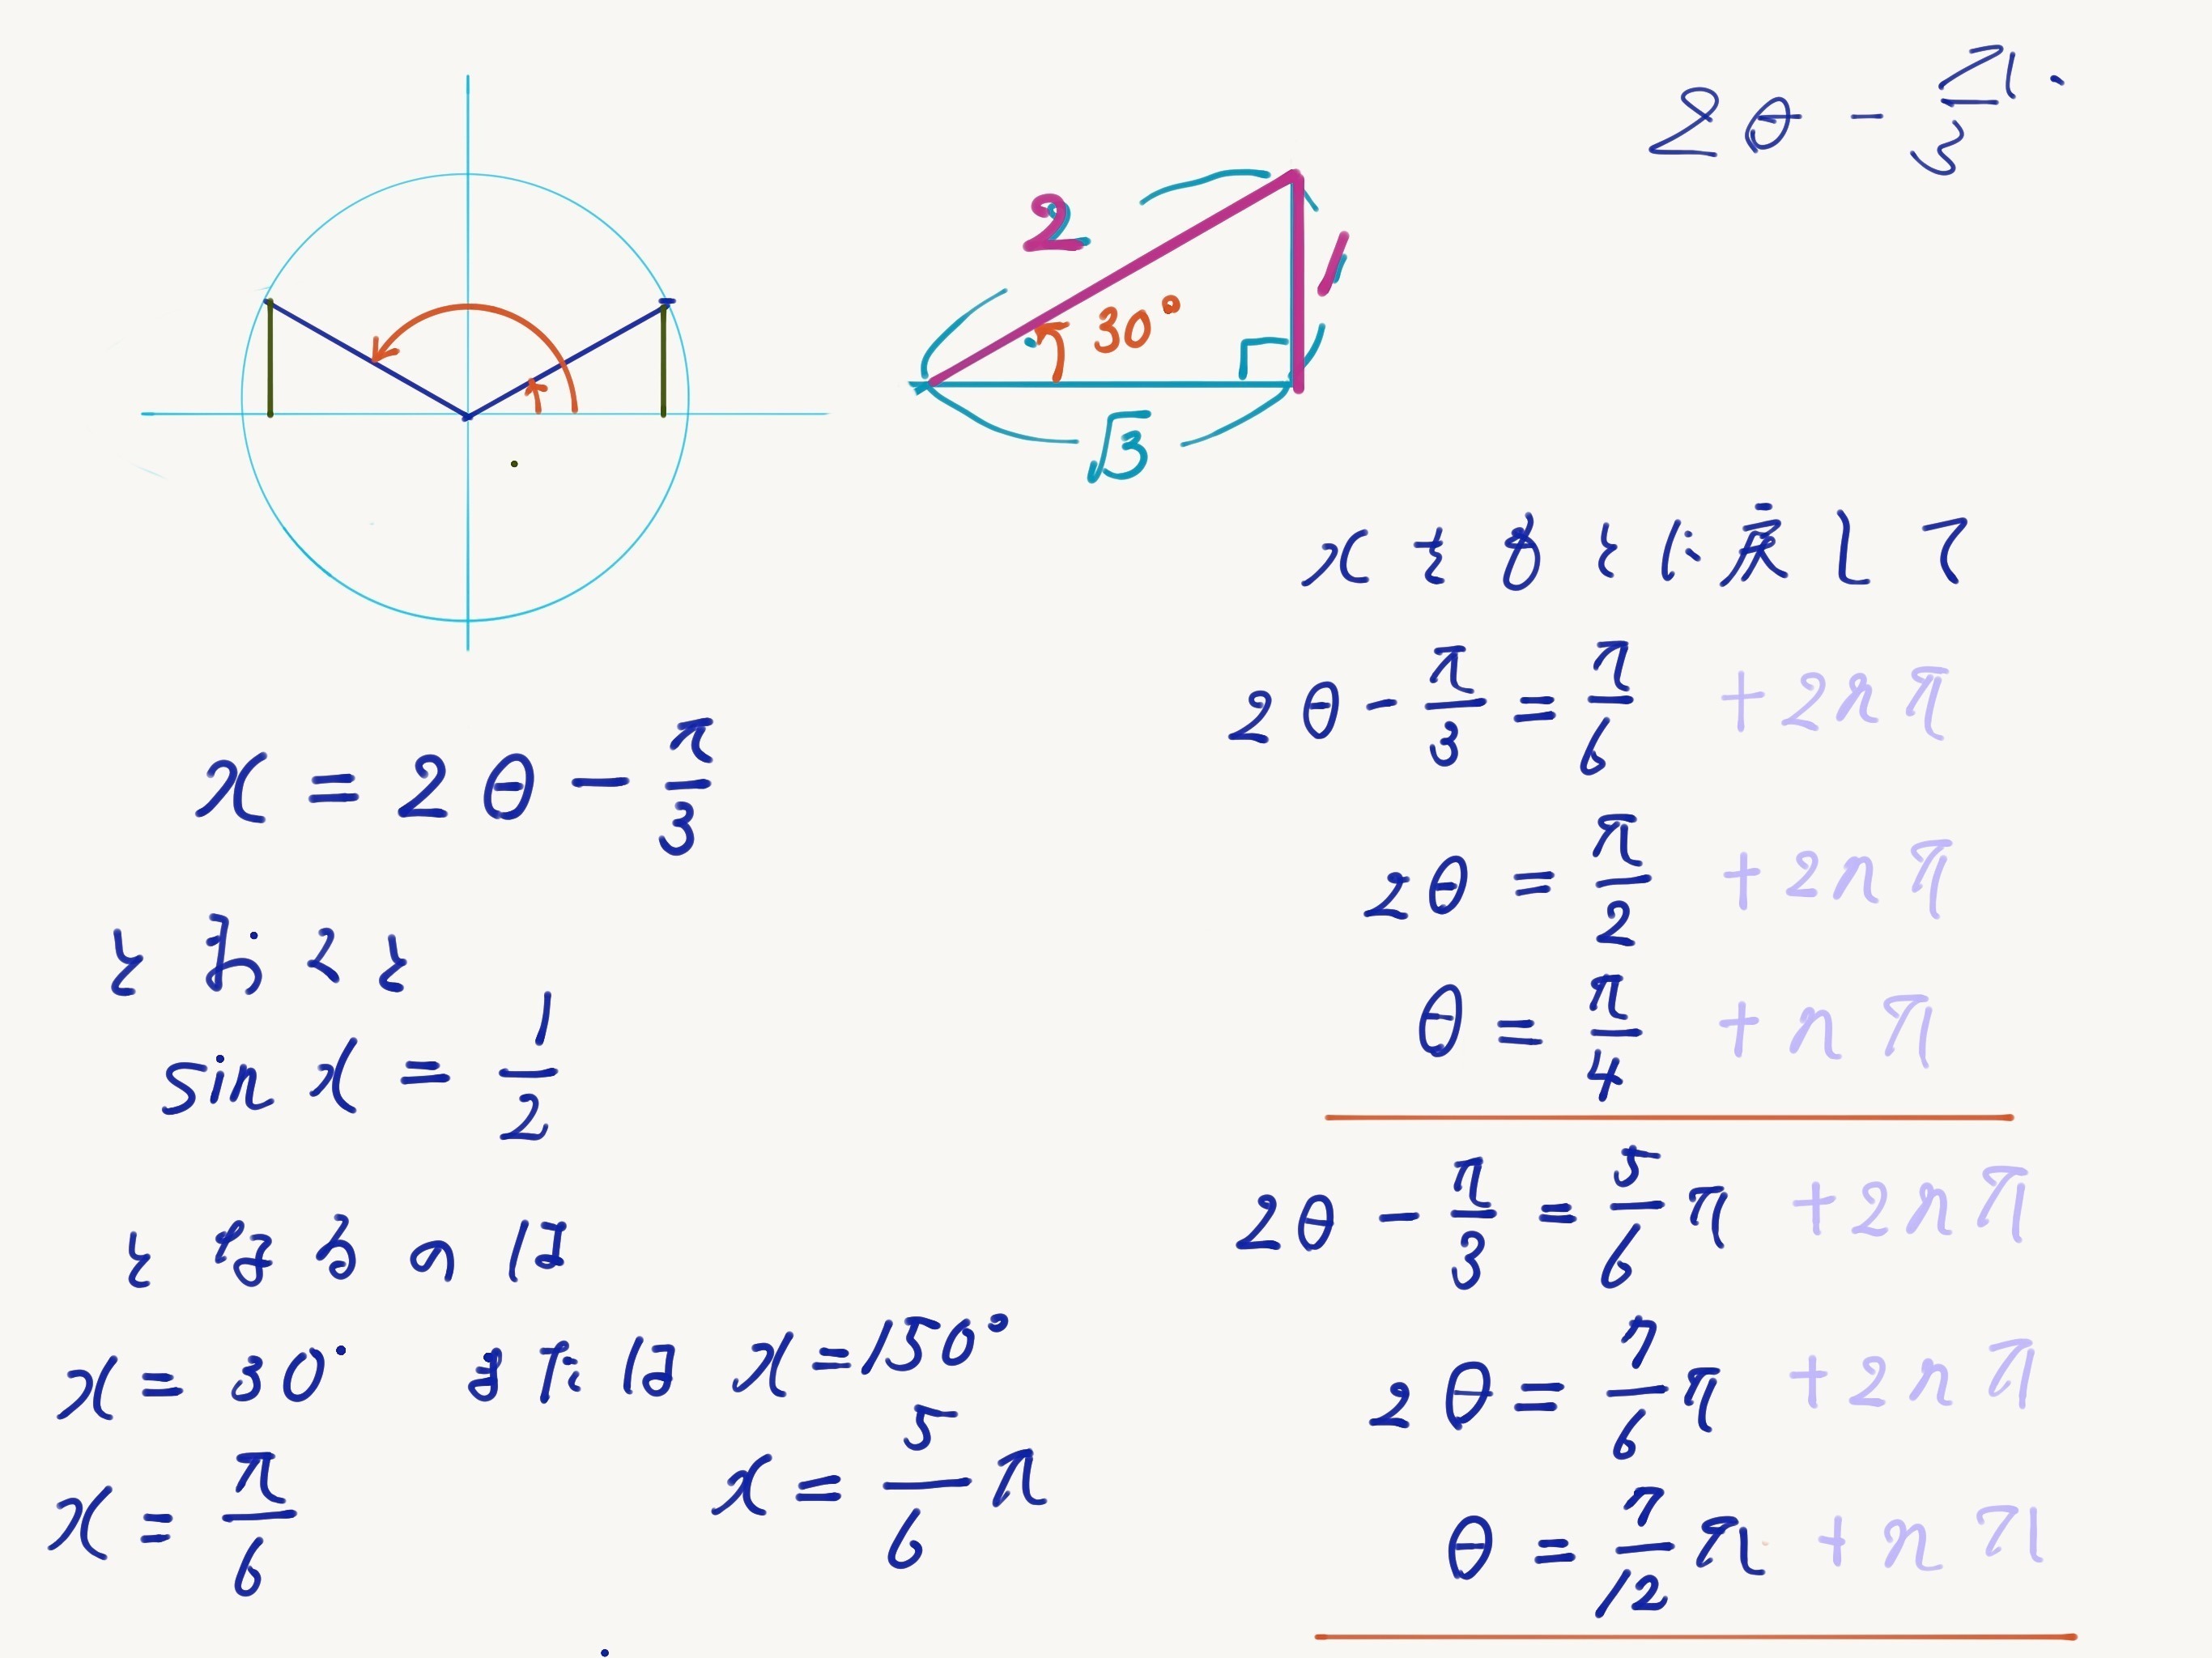 2θ - π/3
2
30°
1
√3
x = 2θ - π/3
とおくと
sin x = 1/2
となるのは
x = 30° または x = 150°
x = π/6 x = 5/6 π
xをもとに戻して
2θ - π/3 = π/6 + 2nπ
2θ = π/2 + 2nπ
θ = π/4 + nπ
2θ - π/3 = 5/6 π + 2nπ
2θ = 7/6 π + 2nπ
θ = 7/12 π + nπ